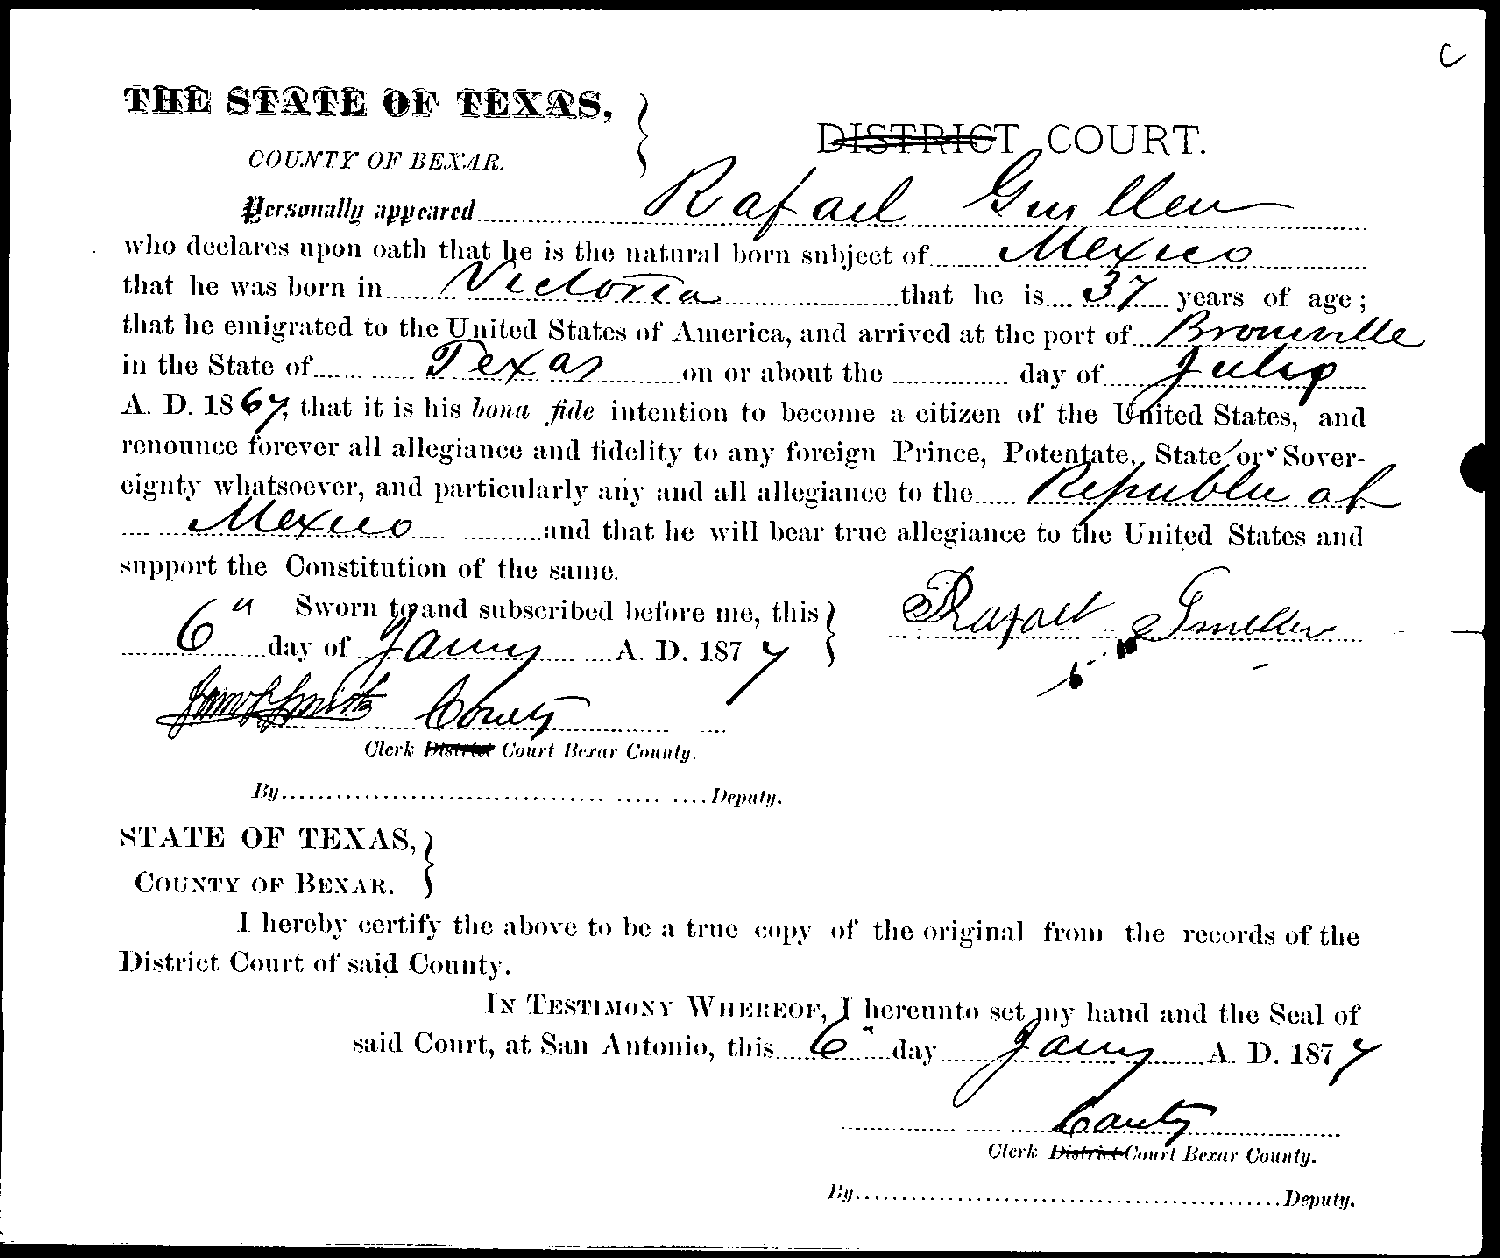 C
THE STATE OF TEXAS,
DISTRICT COURT.
COUNTY OF BEXAR.
Personally appeared Rafael Guillen
who declares upon oath that he is the natural born subject of Mexico
that he was born in Victoria that he is 37 years of age;
that he emigrated to the United States of America, and arrived at the port of Brownville
in the State of Texas on or about the day of July
A. D. 1867, that it is his bona fide intention to become a citizen of the United States, and
renounce forever all allegiance and fidelity to any foreign Prince, Potentate, State or Sover-
eignty whatsoever, and particularly any and all allegiance to the Republic of
Mexico and that he will bear true allegiance to the United States and
support the Constitution of the same.
Sworn to and subscribed before me, this
6" day of Jany A. D. 1877
Rafael Guillen
Sam S. Smith County
Clerk District Court Bexar County.
By Deputy.
STATE OF TEXAS,
COUNTY OF BEXAR.
I hereby certify the above to be a true copy of the original from the records of the
District Court of said County.
IN TESTIMONY WHEREOF, I hereunto set my hand and the Seal of
said Court, at San Antonio, this 6" day Jany A. D. 1877
County
Clerk District Court Bexar County.
By Deputy.